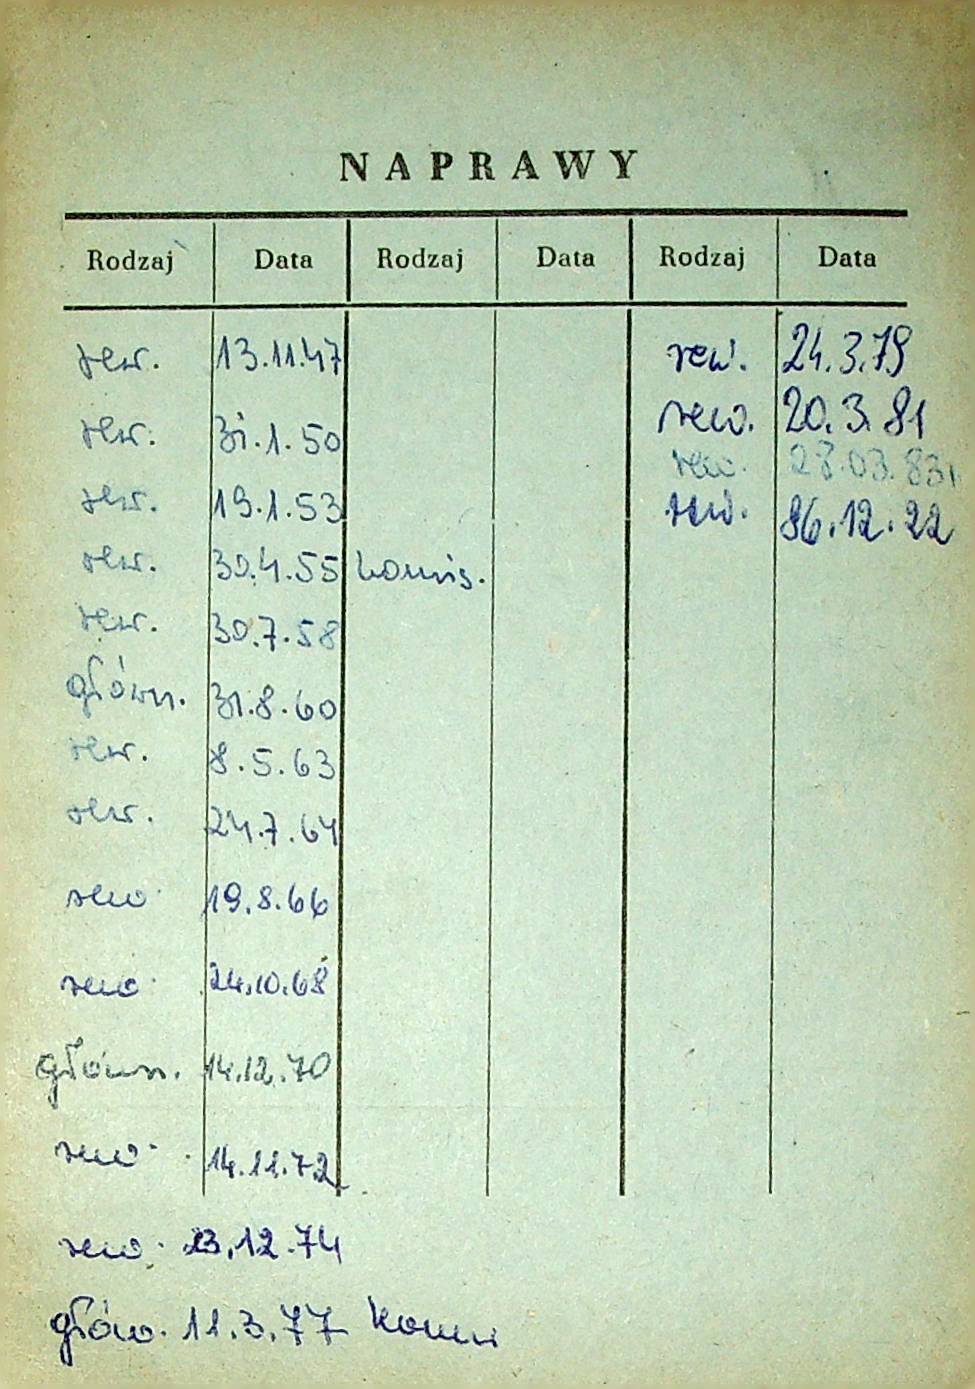 NAPRAWY
Rodzaj Data Rodzaj Data Rodzaj Data
rew. 13.11.47
rew. 31.1.50
rew. 19.1.53
rew. 30.4.55 komis.
rew. 30.7.58
główn. 31.8.60
rew. 8.5.63
rew. 24.7.64
rew. 19.8.66
rew. 24.10.68
główn. 14.12.70
rew. 14.11.72
rew. 23.12.74
głów. 11.3.77
rew. 24.3.79
rew. 20.3.81
rew. 28.03.83
rew. 86.12.22